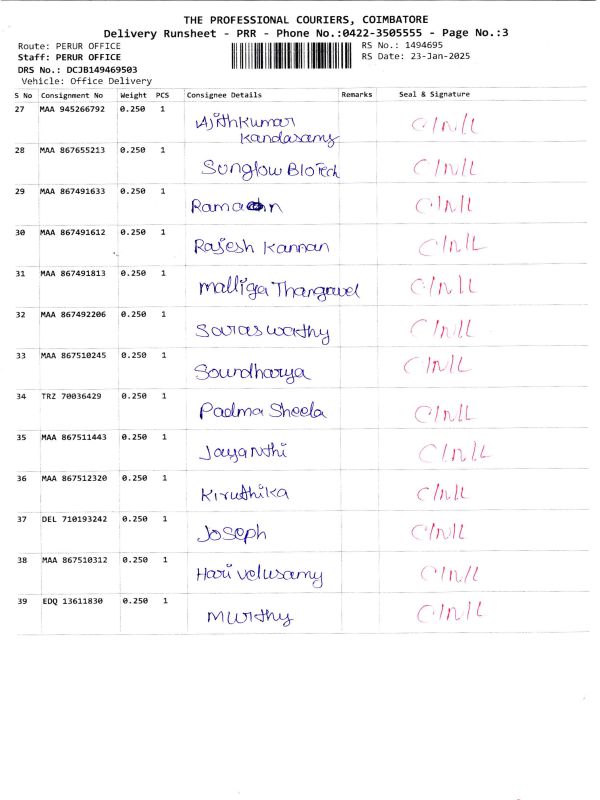 THE PROFESSIONAL COURIERS, COIMBATORE
Delivery Runsheet - PRR - Phone No.:0422-3505555 - Page No.:3
Route: PERUR OFFICE RS No.: 1494695
Staff: PERUR OFFICE RS Date: 23-Jan-2025
DRS No.: DCJB149469503
Vehicle: Office Delivery
S No Consignment No Weight PCS Consignee Details Remarks Seal & Signature
27 MAA 945266792 0.250 1 Ajithkumar C/N/L
Kandasamy
28 MAA 867655213 0.250 1 Sunglow BioTech C/N/L
29 MAA 867491633 0.250 1 C/N/L
30 MAA 867491612 0.250 1 Rajesh Kannan C/N/L
31 MAA 867491813 0.250 1 Malliga Thangavel C/N/L
32 MAA 867492206 0.250 1 Saraswathy C/N/L
33 MAA 867510245 0.250 1 Soundharya C/N/L
34 TRZ 70036429 0.250 1 Padma Sheela C/N/L
35 MAA 867511443 0.250 1 Jayanthi C/N/L
36 MAA 867512320 0.250 1 Kiruthika C/N/L
37 DEL 710193242 0.250 1 Joseph C/N/L
38 MAA 867510312 0.250 1 Hari velusamy C/N/L
39 EDQ 13611830 0.250 1 Murthy C/N/L